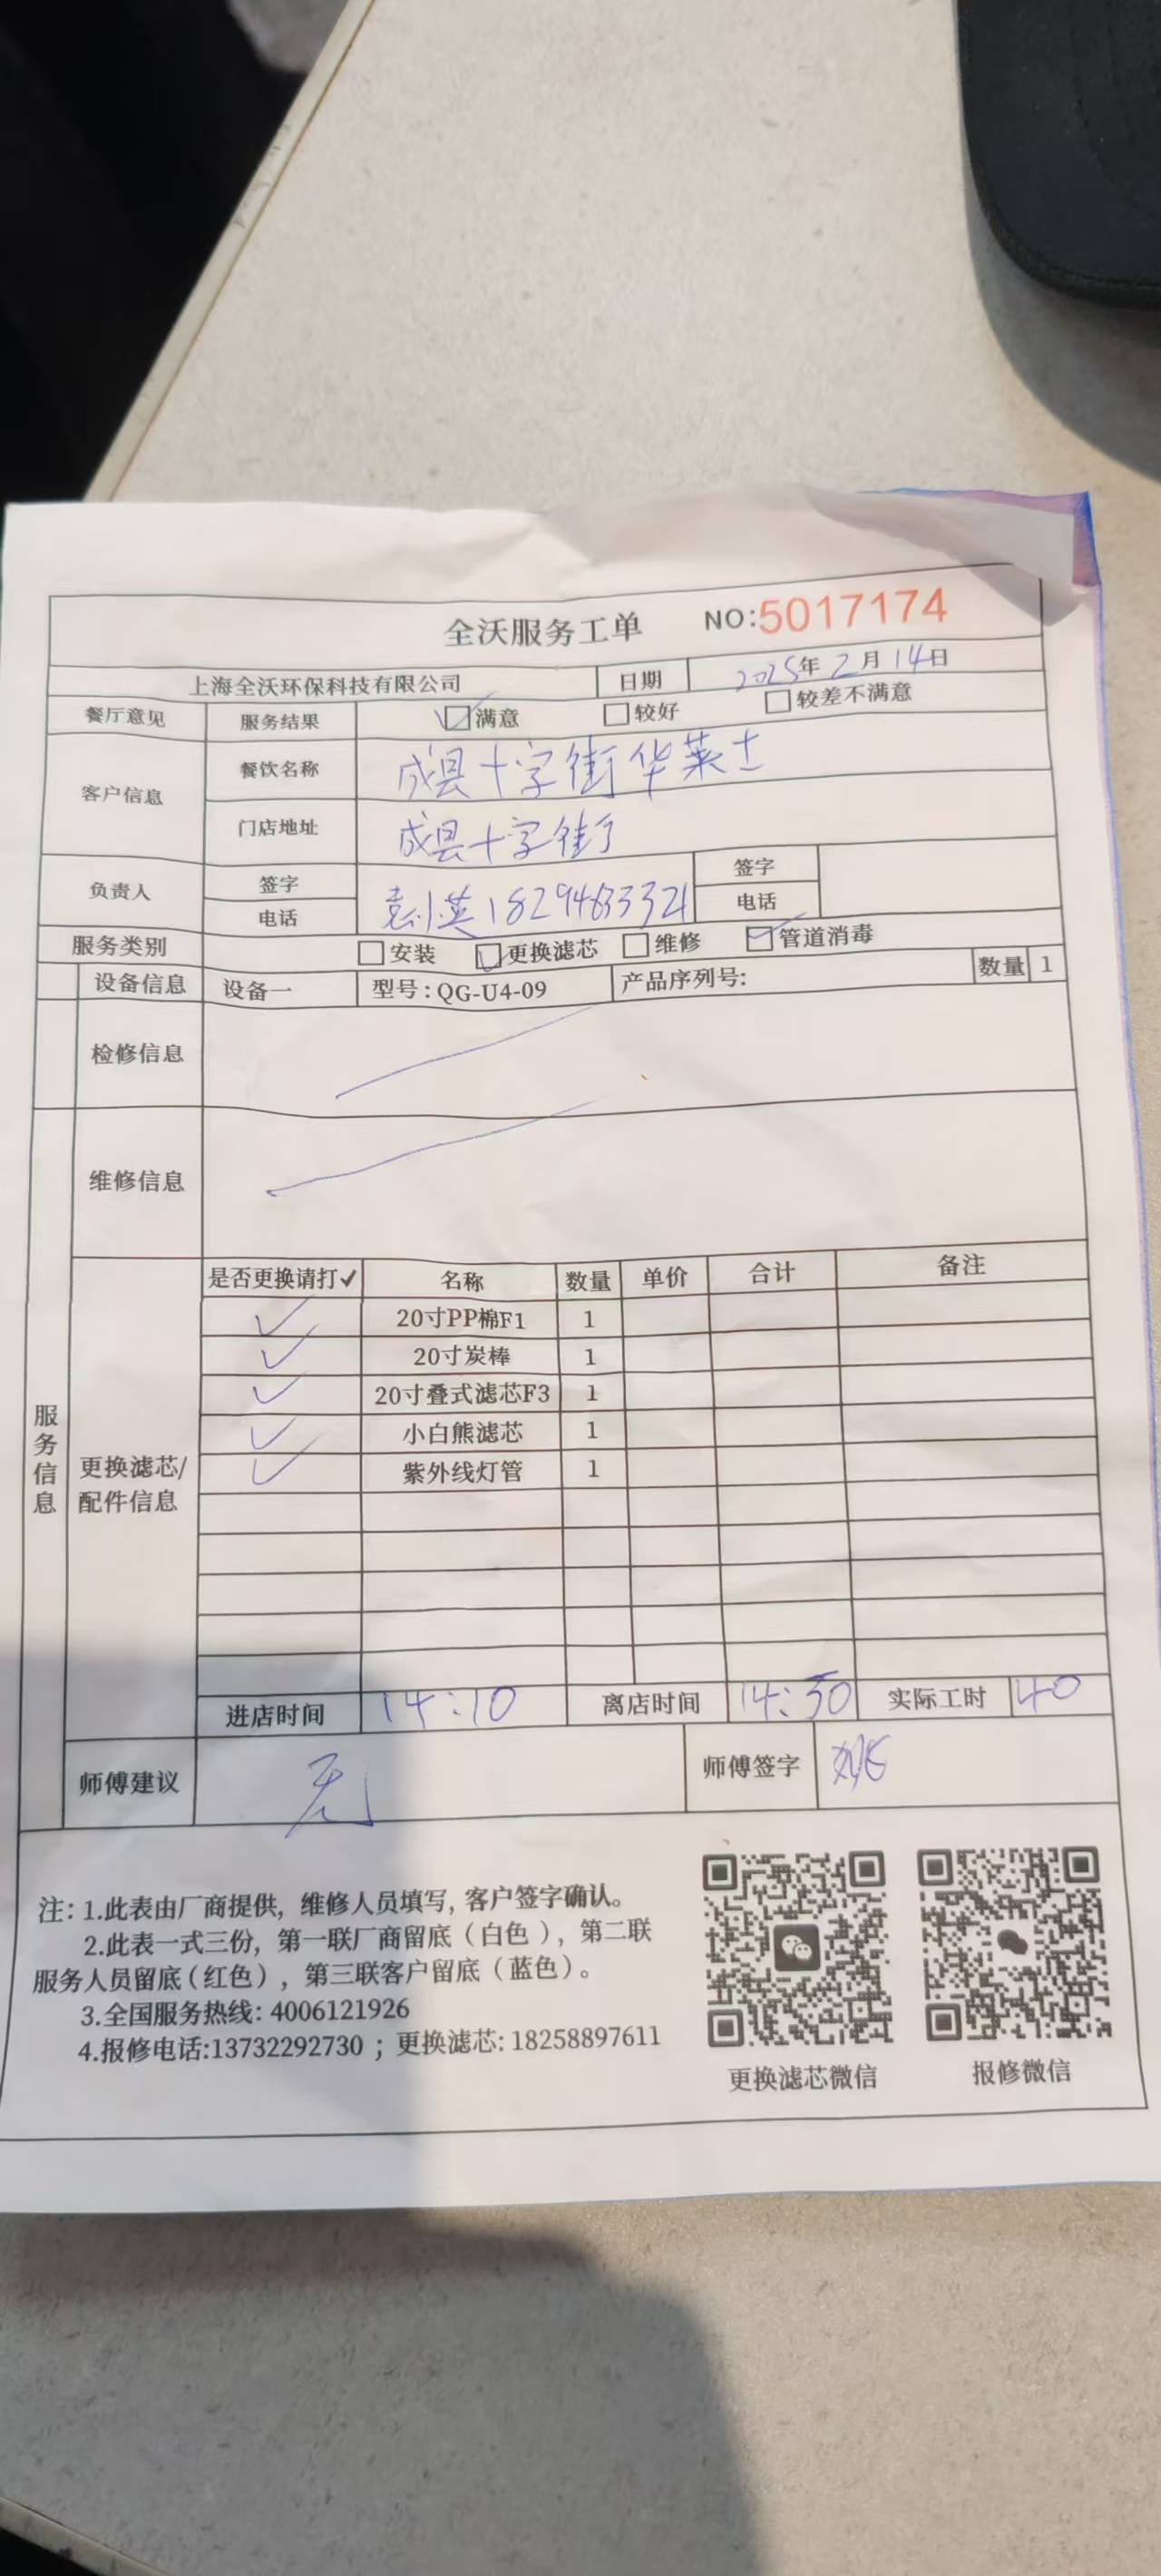 全沃服务工单 NO:5017174
上海全沃环保科技有限公司 日期 2025年2月14日
餐厅意见 服务结果 满意 较好 较差不满意
客户信息 餐饮名称 成县十字街华莱士
门店地址 成县十字街
负责人 签字 签字
电话 18294633321 电话
服务类别 安装 更换滤芯 维修 管道消毒
设备信息 设备一 型号:QG-U4-09 产品序列号: 数量 1
检修信息
维修信息
服务信息
更换滤芯/配件信息
是否更换请打✓ 名称 数量 单价 合计 备注
✓ 20寸PP棉F1 1
✓ 20寸炭棒 1
✓ 20寸叠式滤芯F3 1
✓ 小白熊滤芯 1
✓ 紫外线灯管 1
进店时间 14:10 离店时间 14:50 实际工时 40
师傅建议 无 师傅签字
注: 1.此表由厂商提供, 维修人员填写, 客户签字确认。
2.此表一式三份, 第一联厂商留底（白色）, 第二联
服务人员留底(红色), 第三联客户留底（蓝色）。
3.全国服务热线: 4006121926
4.报修电话:13732292730 ; 更换滤芯: 18258897611
更换滤芯微信 报修微信